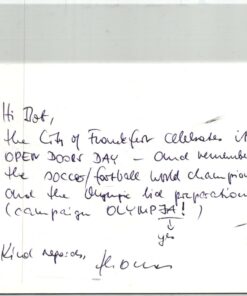 Hi Dot,
the City of Frankfurt celebrates it
OPEN DOORS DAY – and remember
the soccer/football world champion
and the Olympic bid preparation
(campaign OLYMPJA!)
↓
yes
Kind regards, Thomas